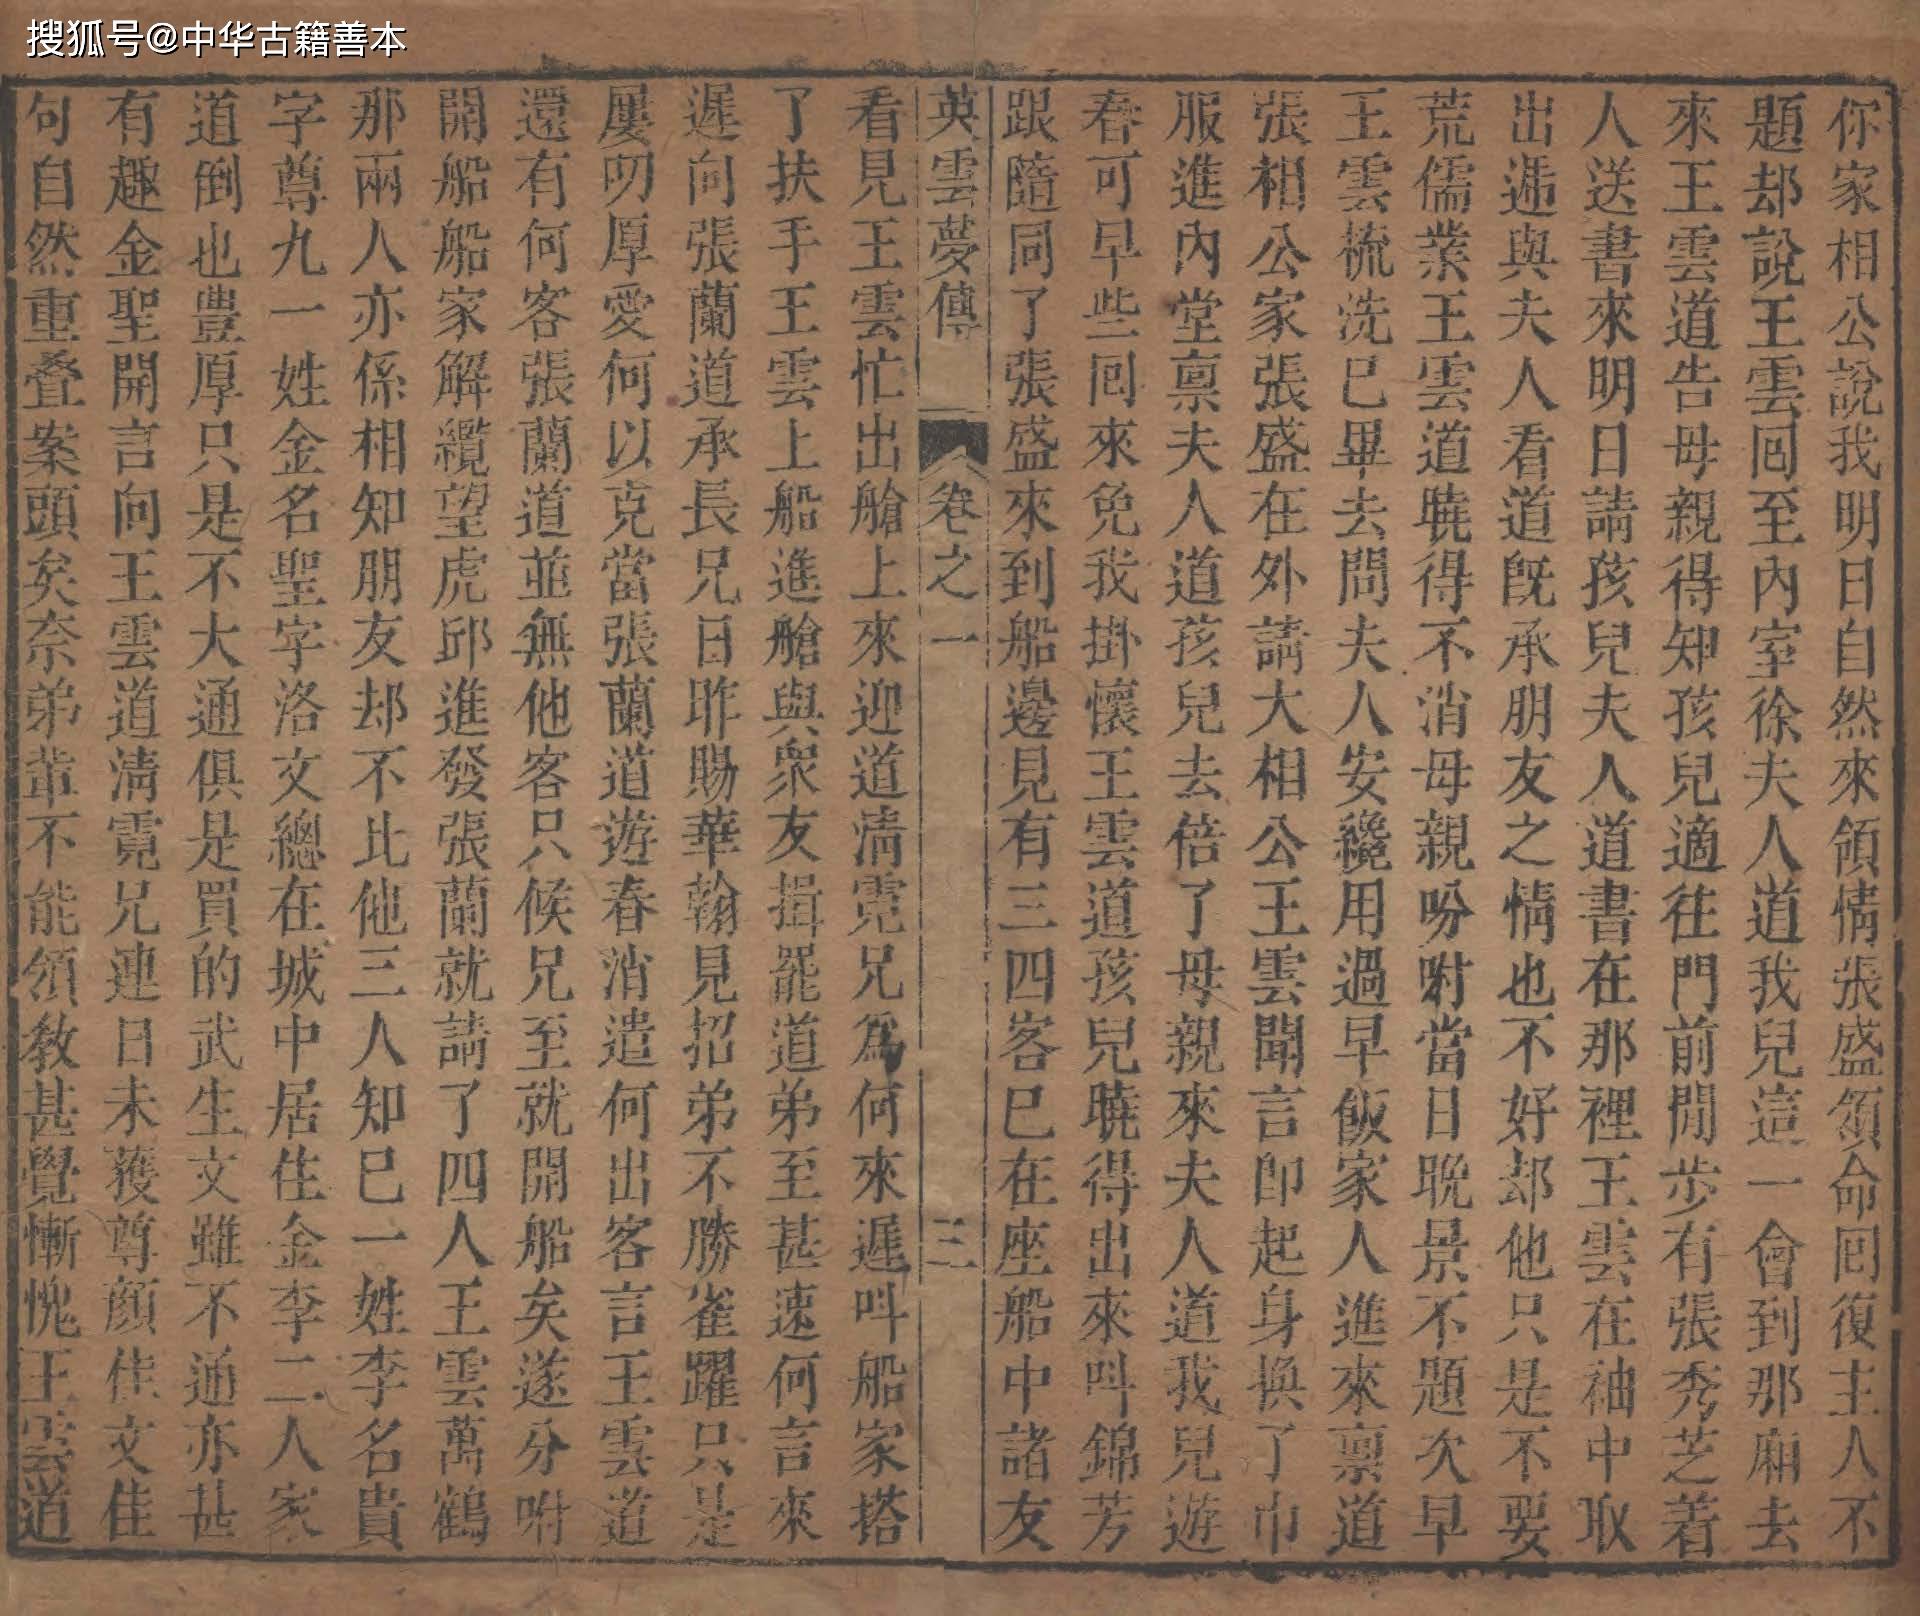 搜狐号@中华古籍善本
你家相公說我明日自然來領情張盛領命囘復主人不
題却說王雲囘至內室徐夫人道我兒這一會到那廂去
來王雲道告母親得知孩兒適往門前閒步有張秀芝着
人送書來明日請孩兒夫人道書在那裡王雲在袖中取
出遞與夫人看道旣承朋友之情也不好却他只是不要
荒儒業王雲道曉得不消母親吩咐當日晚景不題次早
王雲梳洗已畢去問夫人安纔用過早飯家人進來禀道
張相公家張盛在外請大相公王雲聞言即起身換了巾
服進內堂禀夫人道孩兒去倍了母親來夫人道我兒遊
春可早些囘來免我掛懷王雲道孩兒曉得出來呌錦芳
跟隨同了張盛來到船邊見有三四客已在座船中諸友
英雲夢傳 卷之一 三
看見王雲忙出艙上來迎道淸霓兄爲何來遲呌船家搭
了扶手王雲上船進艙與衆友揖罷道弟至甚速何言來
遲向張蘭道承長兄日昨賜華翰見招弟不勝雀躍只是
屢叨厚愛何以克當張蘭道遊春消遣何出客言王雲道
還有何客張蘭道並無他客只候兄至就開船矣遂分咐
開船船家解纜望虎邱進發張蘭就請了四人王雲萬鶴
那兩人亦係相知朋友却不比他三人知巳一姓李名貴
字尊九一姓金名聖字洛文總在城中居住金李二人家
道倒也豊厚只是不大通俱是買的武生文雖不通亦甚
有趣金聖開言向王雲道淸霓兄連日未獲尊顔佳文佳
句自然重叠案頭矣奈弟輩不能領教甚覺慚愧王雲道